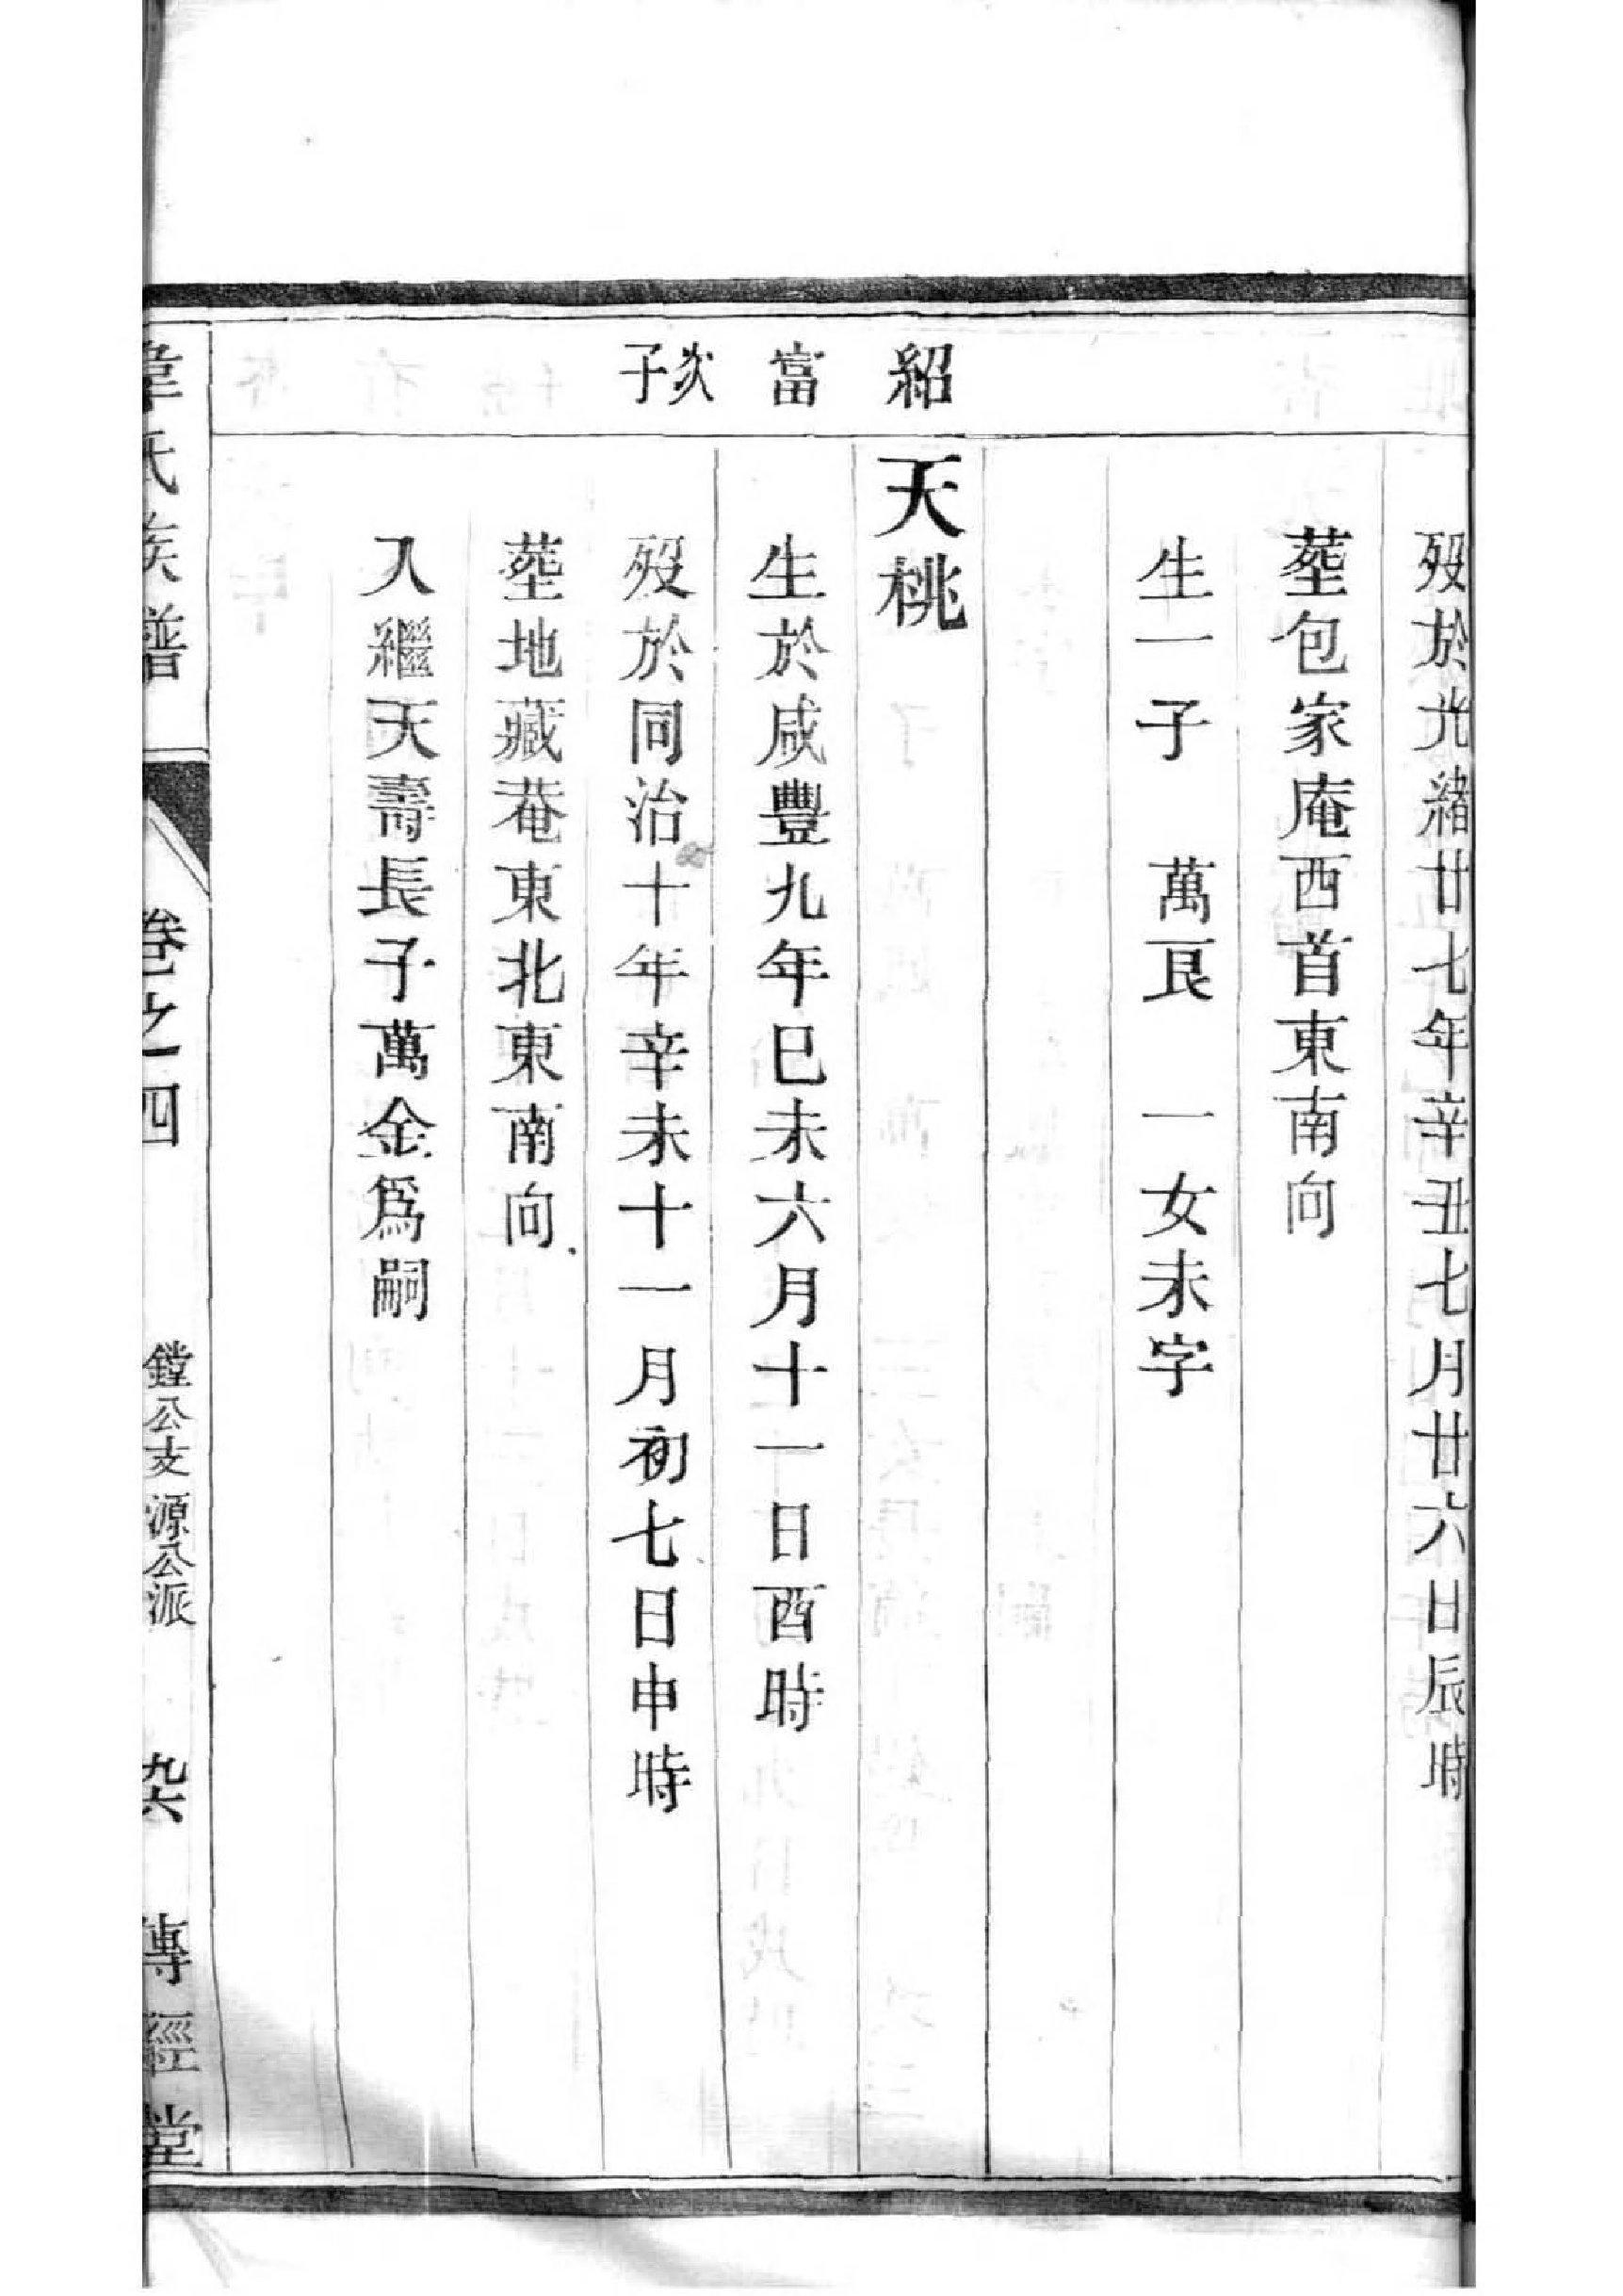 歿於光緒廿七年辛丑七月廿六日辰時
塟包家庵西首東南向
生一子 萬艮 一女未字
紹富次子
天桃
生於咸豐九年巳未六月十一日酉時
歿於同治十年辛未十一月初七日申時
塟地藏菴東北東南向
入繼天壽長子萬金爲嗣
韋氏族譜 卷之四 鏜公支源公派 九六 傳經堂